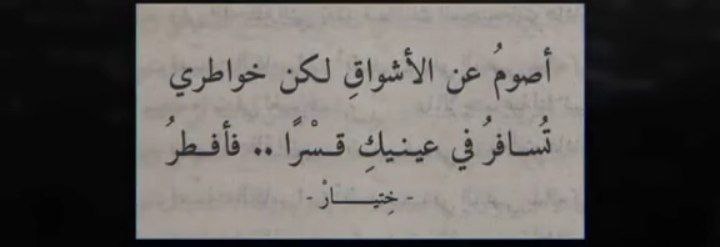 أصومُ عن الأشواقِ لكن خواطري
تُسافرُ في عينيكِ قسْرًا .. فأفطرُ
- خِتيارْ -